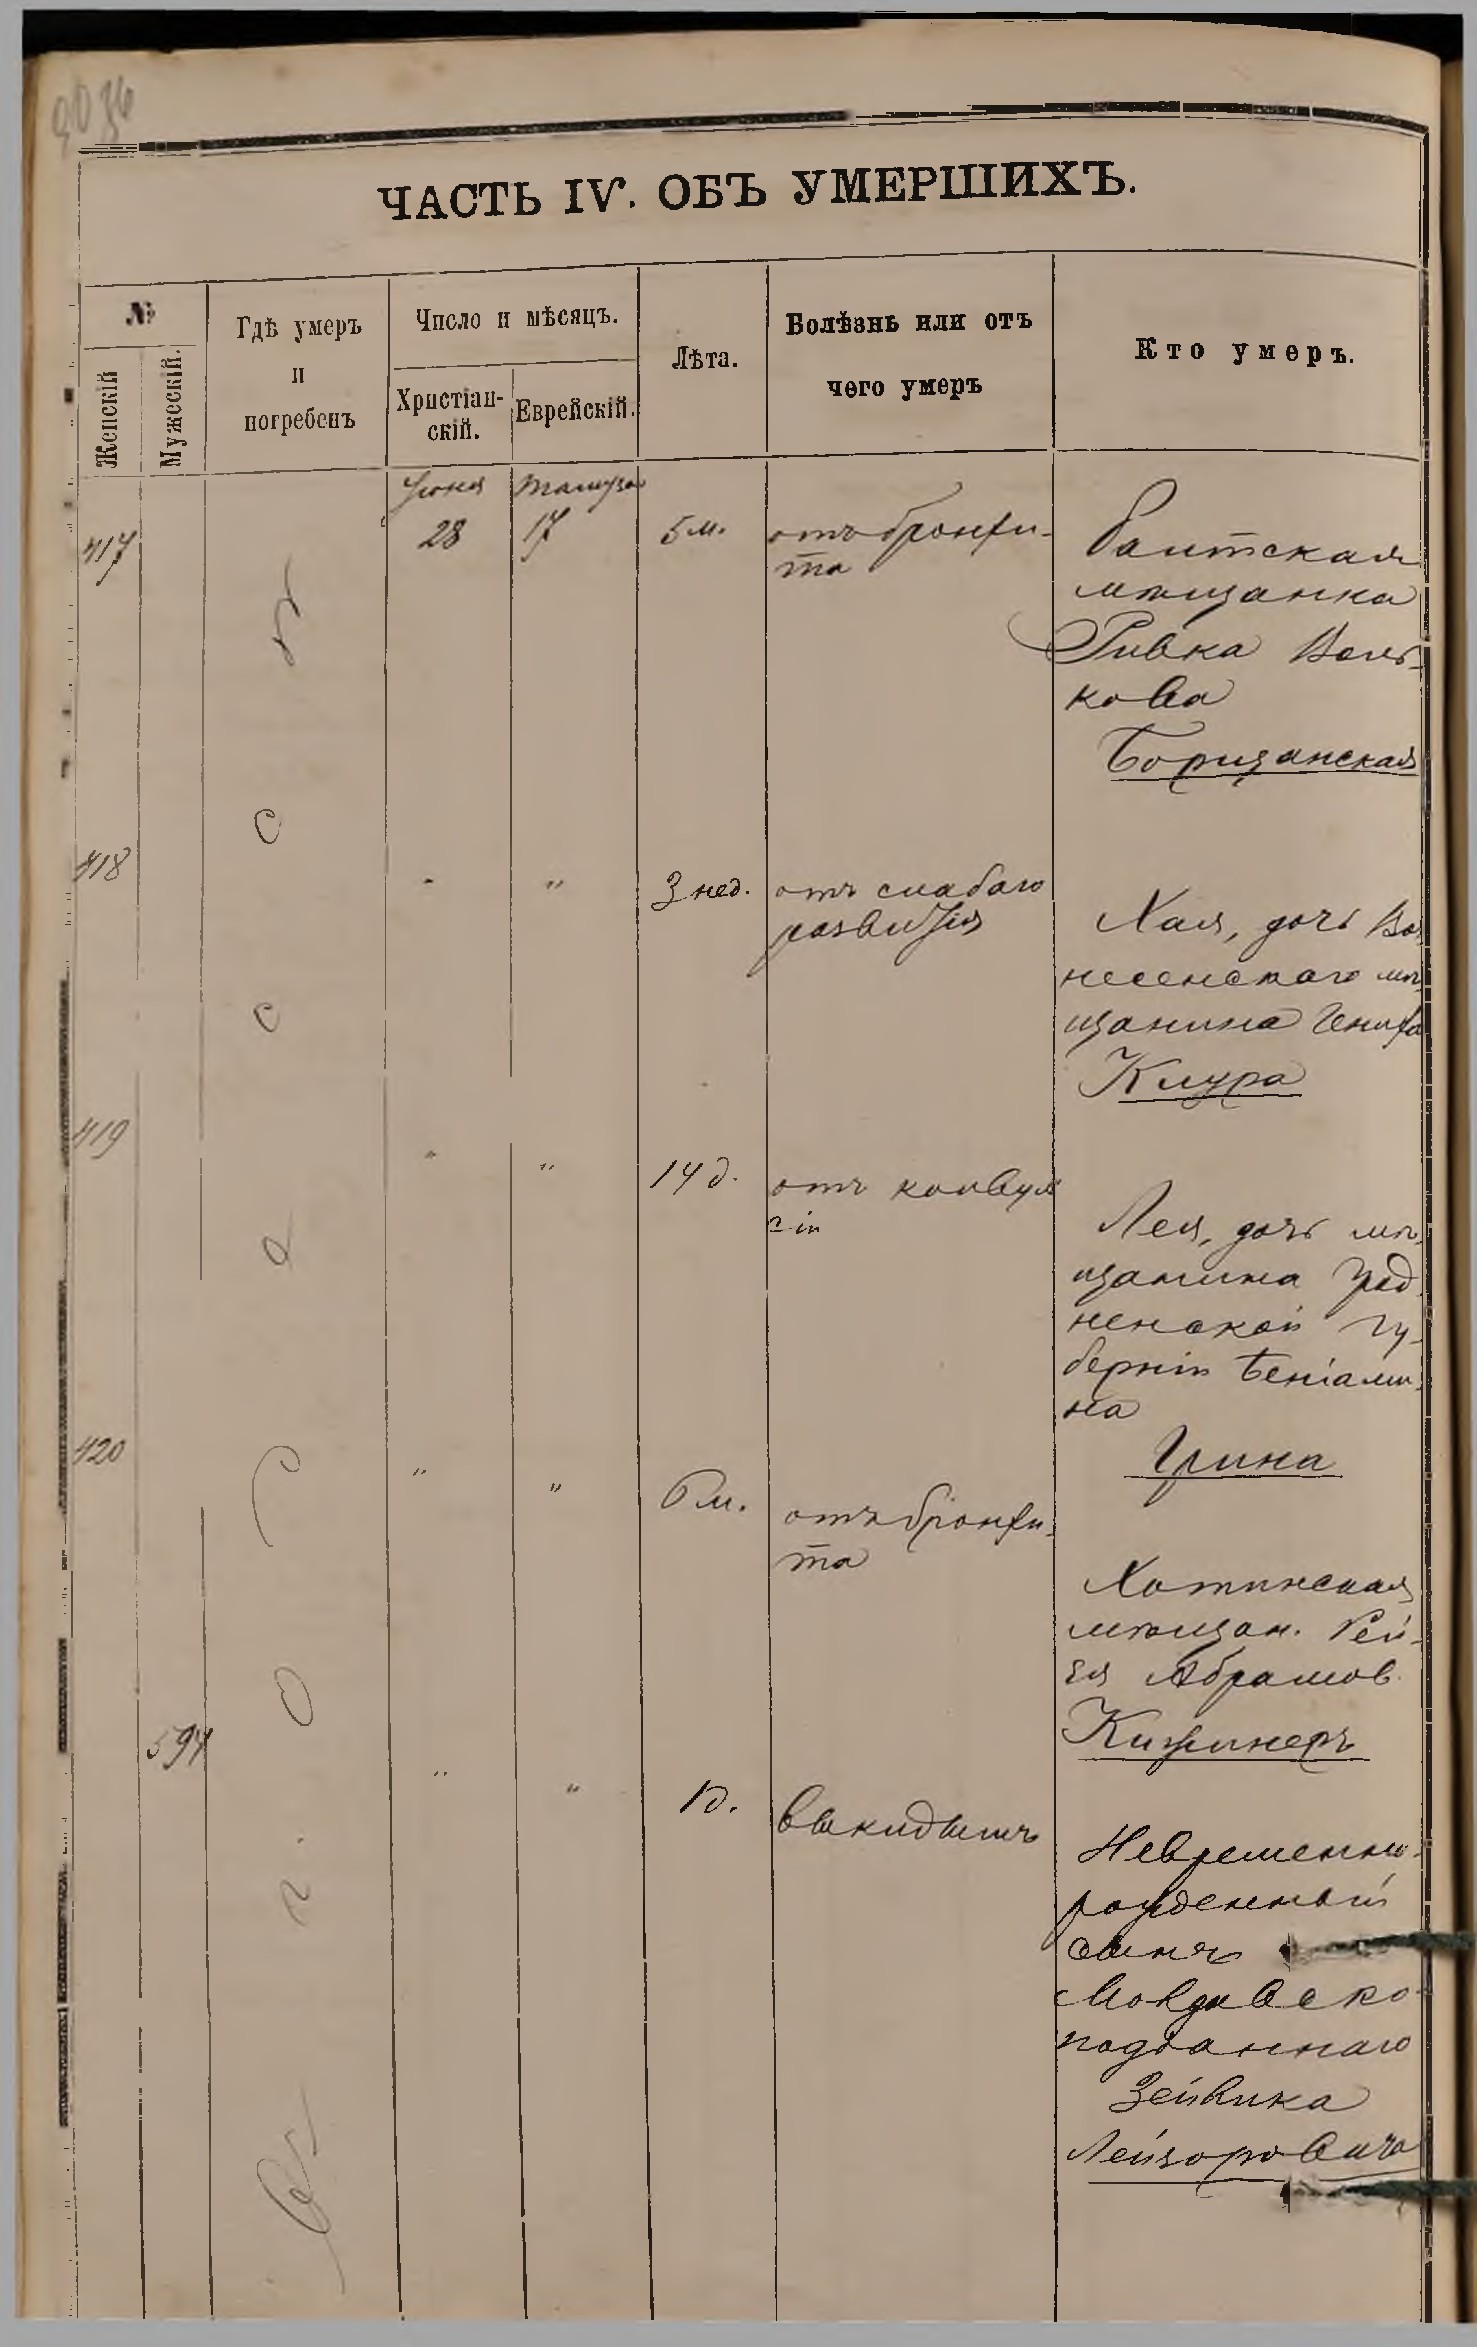 ЧАСТЬ IV. ОБЪ УМЕРШИХЪ.
№
Женскій
Мужескій.
Гдѣ умеръ
и
погребенъ
Число и мѣсяцъ.
Христіан-
скій.
Еврейскій.
Лѣта.
Болѣзнь или отъ
чего умеръ
Кто умеръ.
Въ г. Одессѣ
Іюня
Тамуза
417
28
17
5 м.
отъ бронхи-
та
мѣщанка
Ривка Воль-
кова
Борщанская
418
"
"
3 нед.
отъ слабаго
развитія
Хая, дочь Воз
несенскаго мѣ
щанина
Клура
419
"
"
14 д.
отъ конвуль
сіи
Лея, дочь мѣ-
щанина Грод-
ненской гу-
берніи Беніами-
на
Грина
420
"
"
6 м.
отъ бронхи-
та
Хотинская
мѣщан. Рей-
зя Абрамов.
Кишинеръ
594
"
"
1 д.
выкидышъ
Невременно-
рожденный
сынъ
Молдавско-
подданнаго
Зейвика
Лейзоровича